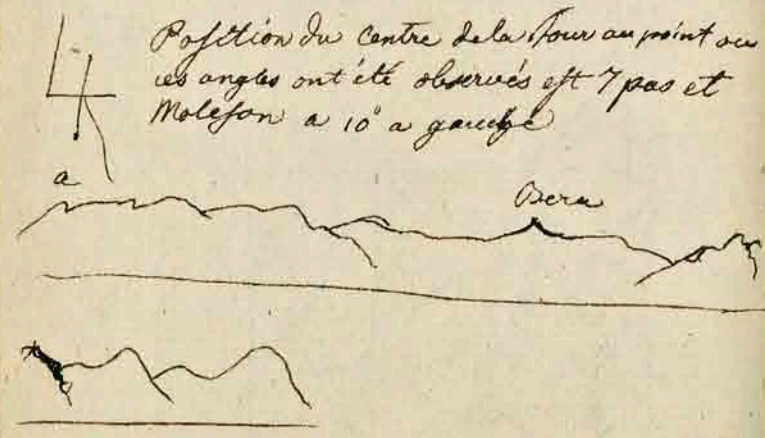 Position du Centre de la Tour au point ou
ces angles ont été observés est 7 pas et
Moleson a 10° a gauche
a
Bera